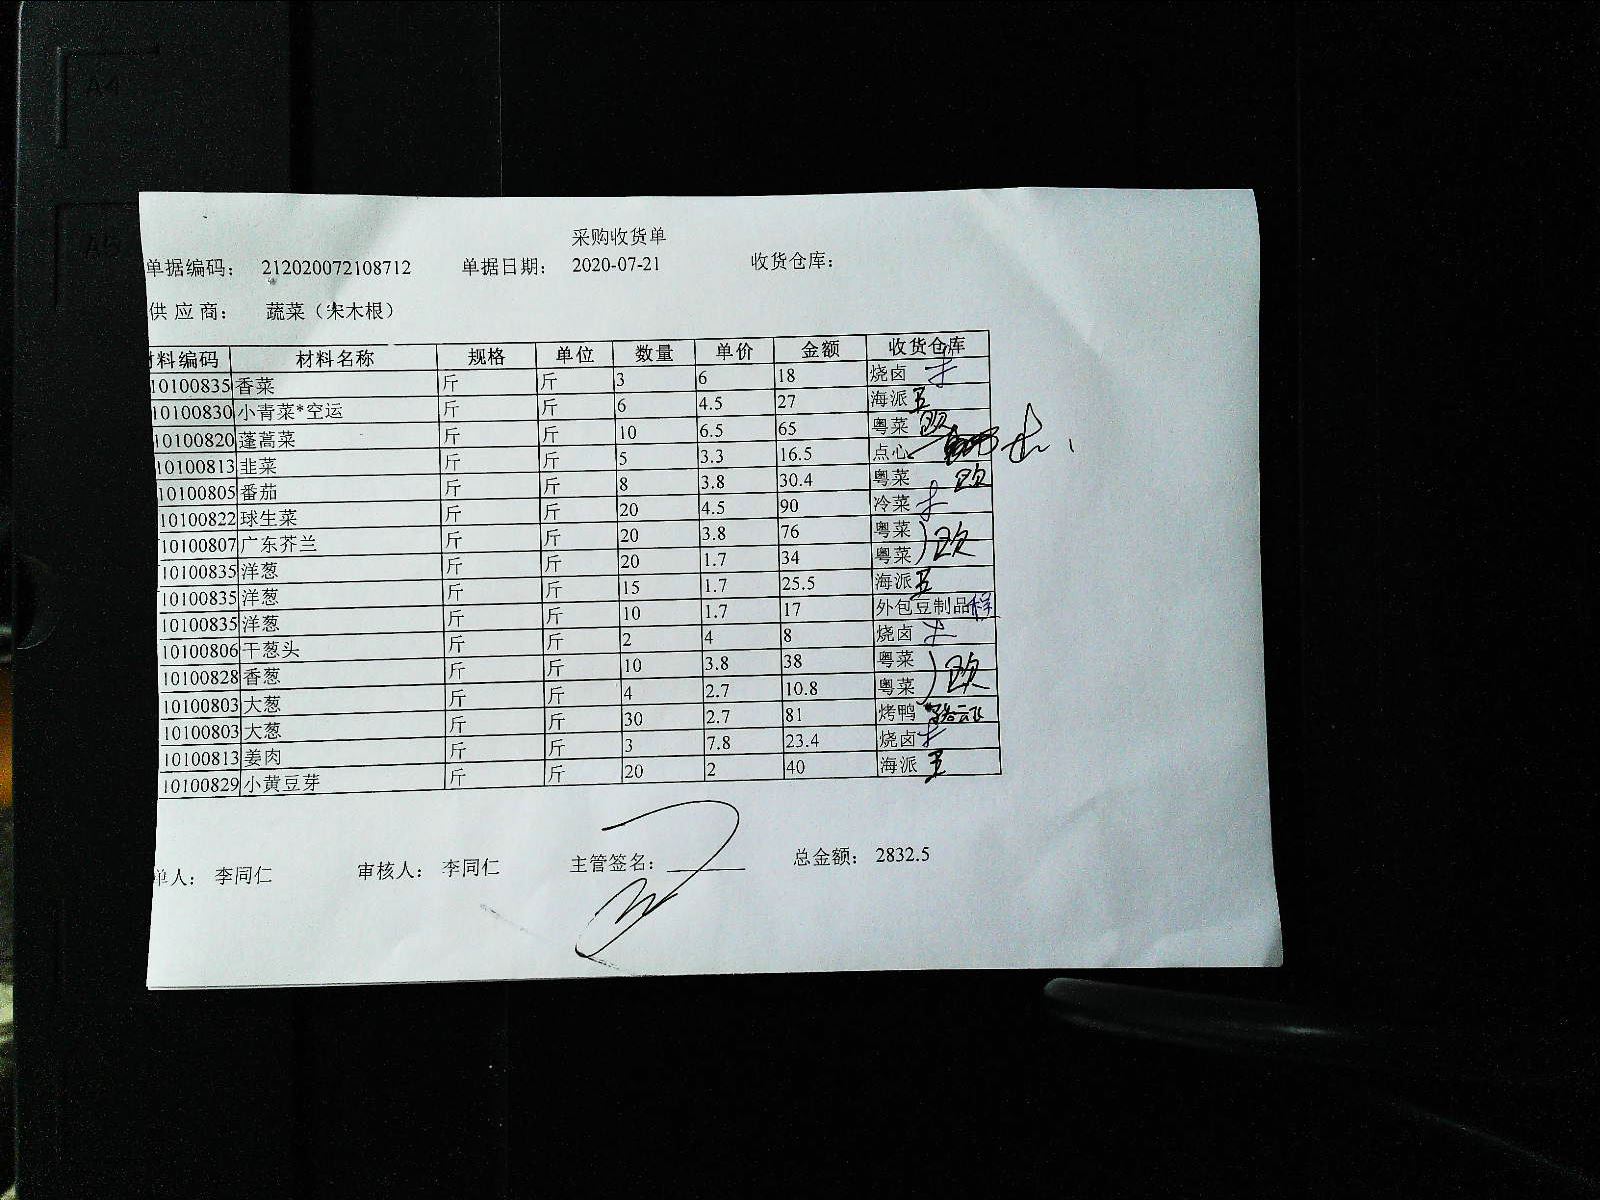 采购收货单
单据编码： 212020072108712 单据日期： 2020-07-21 收货仓库：
供 应 商： 蔬菜（宋木根）
材料编码 材料名称 规格 单位 数量 单价 金额 收货仓库
10100835 香菜 斤 斤 3 6 18 烧卤
10100830 小青菜*空运 斤 斤 6 4.5 27 海派
10100820 蓬蒿菜 斤 斤 10 6.5 65 粤菜 欧
10100813 韭菜 斤 斤 5 3.3 16.5 点心
10100805 番茄 斤 斤 8 3.8 30.4 粤菜 欧
10100822 球生菜 斤 斤 20 4.5 90 冷菜
10100807 广东芥兰 斤 斤 20 3.8 76 粤菜 欧
10100835 洋葱 斤 斤 20 1.7 34 粤菜
10100835 洋葱 斤 斤 15 1.7 25.5 海派
10100835 洋葱 斤 斤 10 1.7 17 外包豆制品
10100806 干葱头 斤 斤 2 4 8 烧卤
10100828 香葱 斤 斤 10 3.8 38 粤菜 欧
10100803 大葱 斤 斤 4 2.7 10.8 粤菜
10100803 大葱 斤 斤 30 2.7 81 烤鸭
10100813 姜肉 斤 斤 3 7.8 23.4 烧卤
10100829 小黄豆芽 斤 斤 20 2 40 海派
单人： 李同仁 审核人： 李同仁 主管签名： 总金额： 2832.5